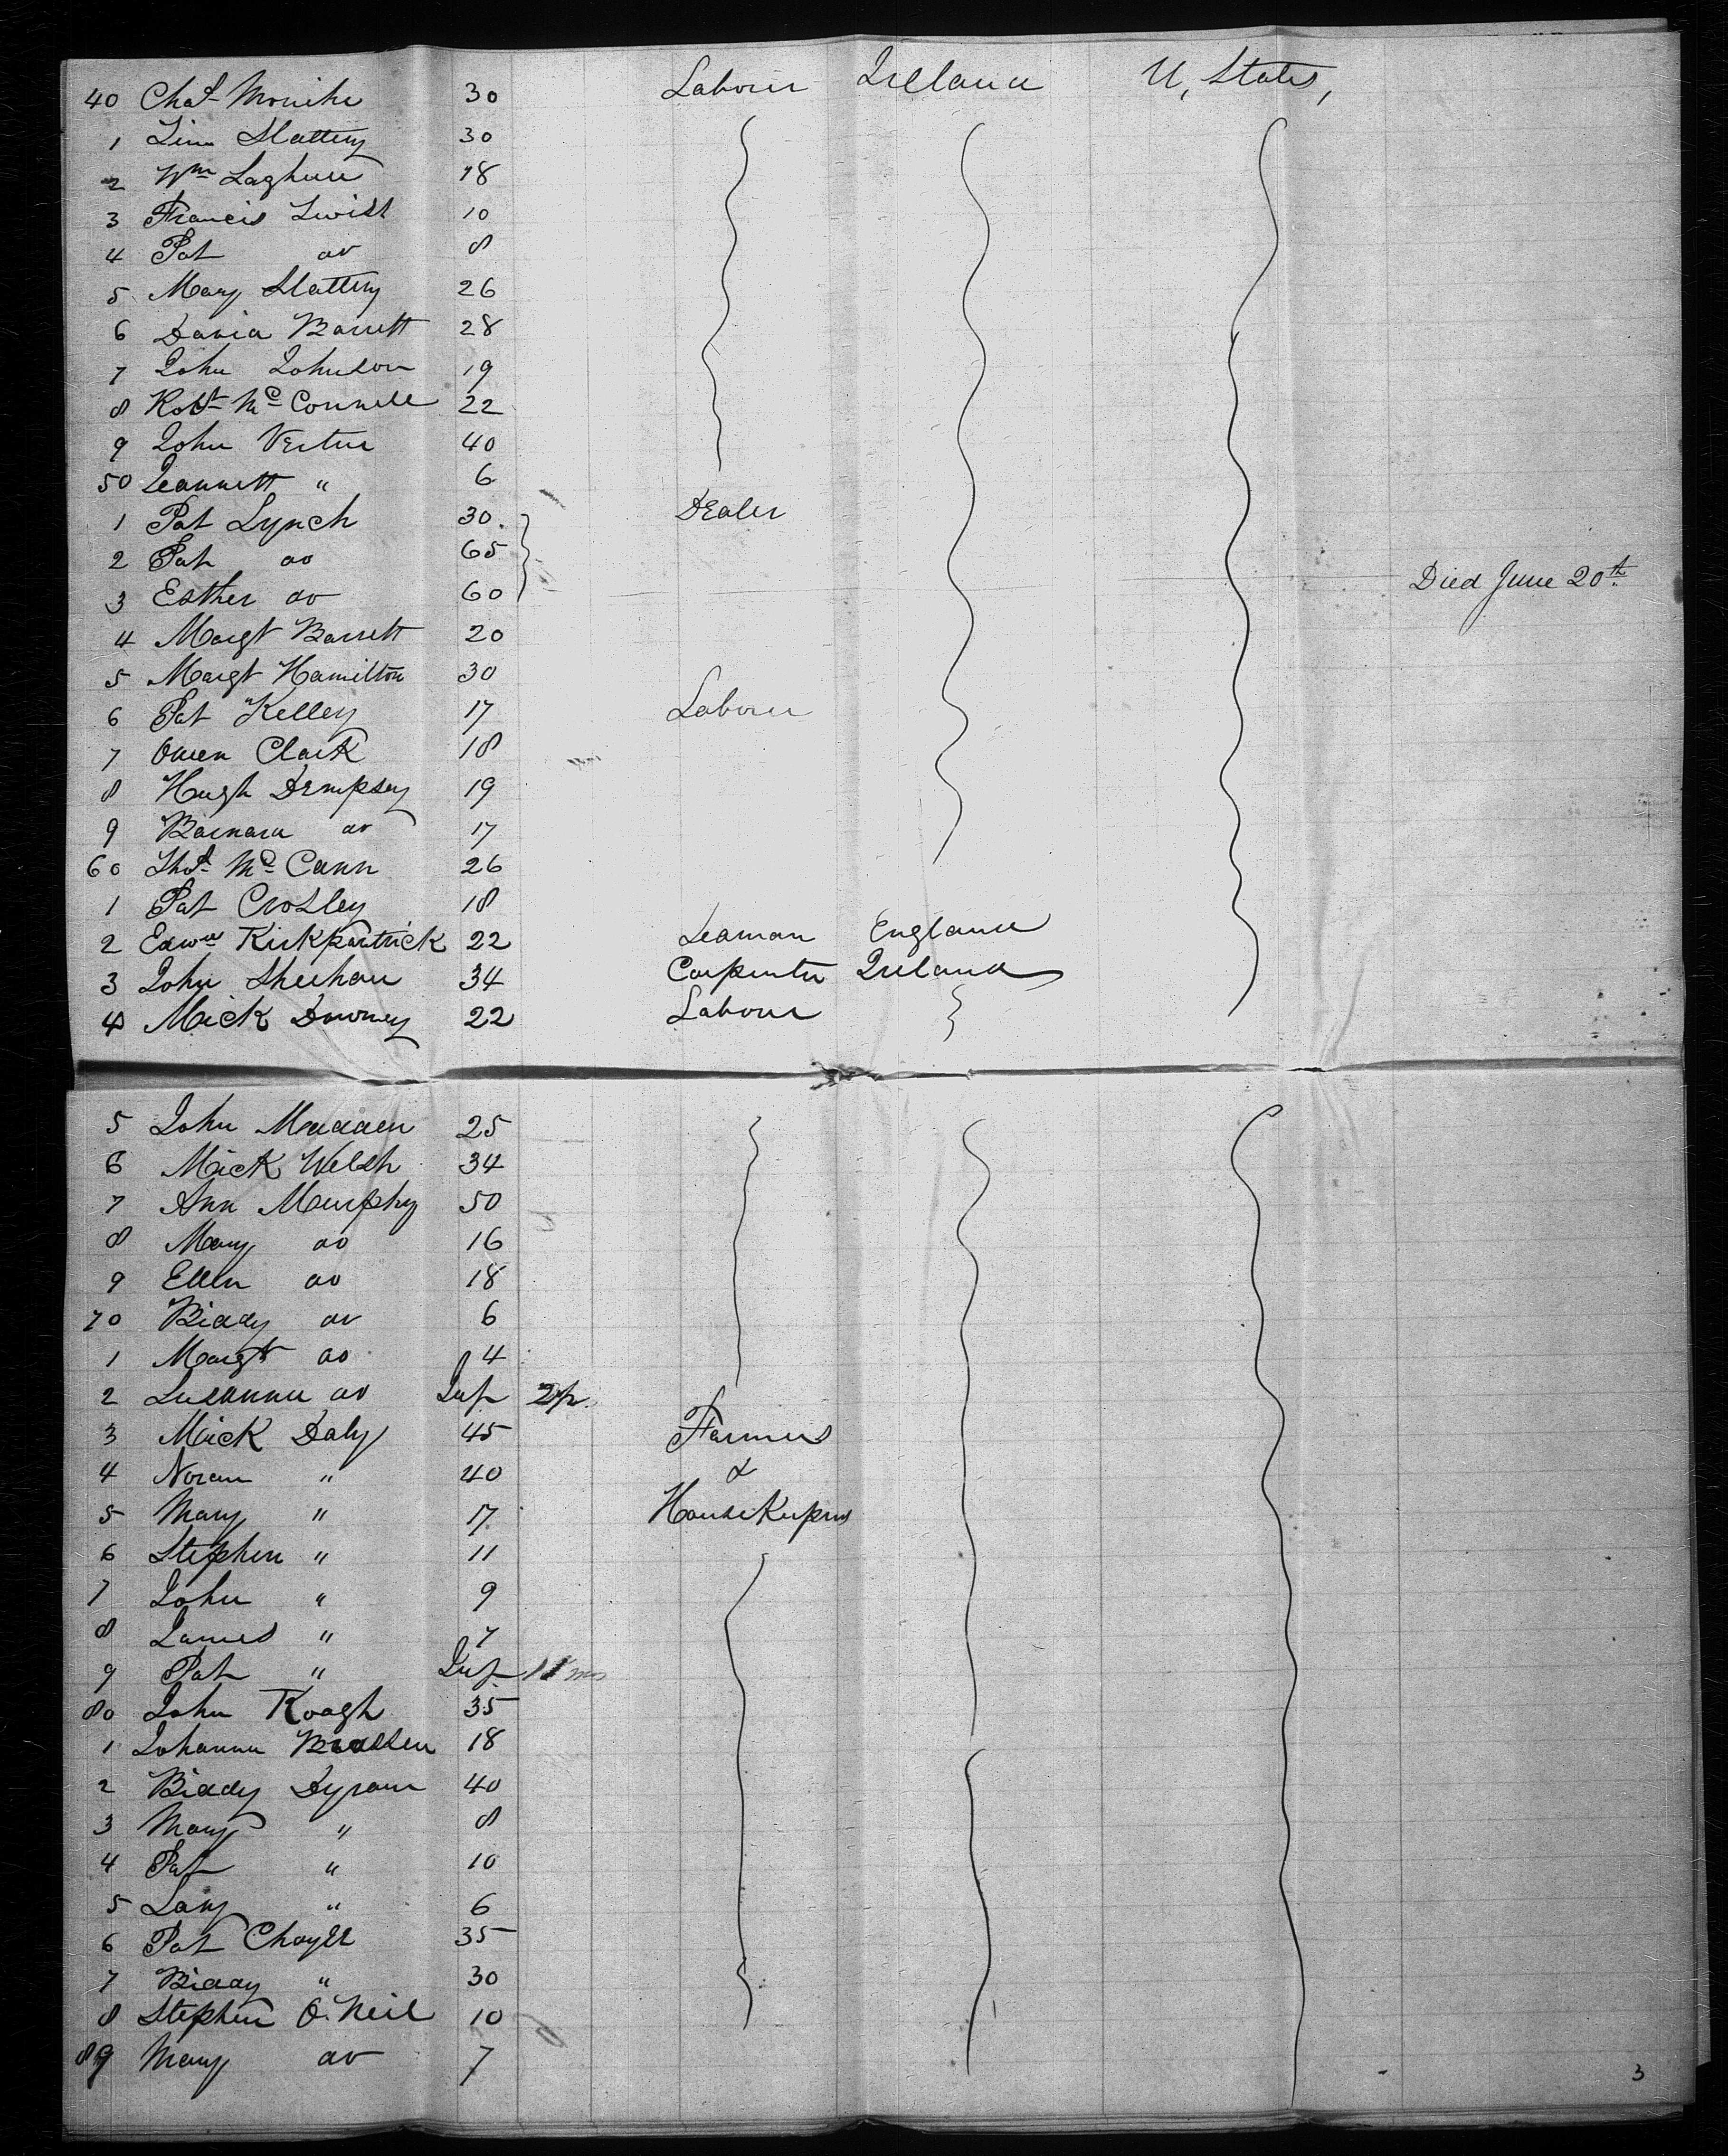 40 Chas Monihe 30 Labour Ireland U, States,
1 Tim Slattery 30
2 Wm Laghuu 18
3 Francis Twist 10
4 Pat do 8
5 Mary Slattery 26
6 David Barrett 28
7 John Johnson 19
8 Robt McConnell 22
9 John Vertue 40
50 Jeannett " 6
1 Pat Lynch 30 Dealer
2 Pat do 65
3 Esther do 60 Died June 20th
4 Margt Barrett 20
5 Margt Hamilton 30
6 Pat Kelley 17 Labour
7 Owen Clark 18
8 Hugh Dempsey 19
9 Barnard do 17
60 Thos McCann 26
1 Pat Crosley 18
2 Edwd Kirkpartrick 22 Seaman England
3 John Sheehan 34 Carpenter Ireland
4 Mick Downey 22 Labour
5 John Madden 25
6 Mick Welsh 34
7 Ann Murphy 50
8 Mary do 16
9 Ellen do 18
70 Biddy do 6
1 Margt do 4
2 Susanna do Inf
3 Mick Daly 45 Farmers
4 Noran " 40 &
5 Mary " 17 Housekeepers
6 Stephen " 11
7 John " 9
8 James " 7
9 Pat " Inf 11 mo
80 John Koagh 35
1 Johanna 18
2 Biddy Dyram 40
3 Mary " 8
4 Pat " 10
5 Lany " 6
6 Pat 35
7 Biddy " 30
8 Stephen O'Neil 10
89 Mary do 7
3